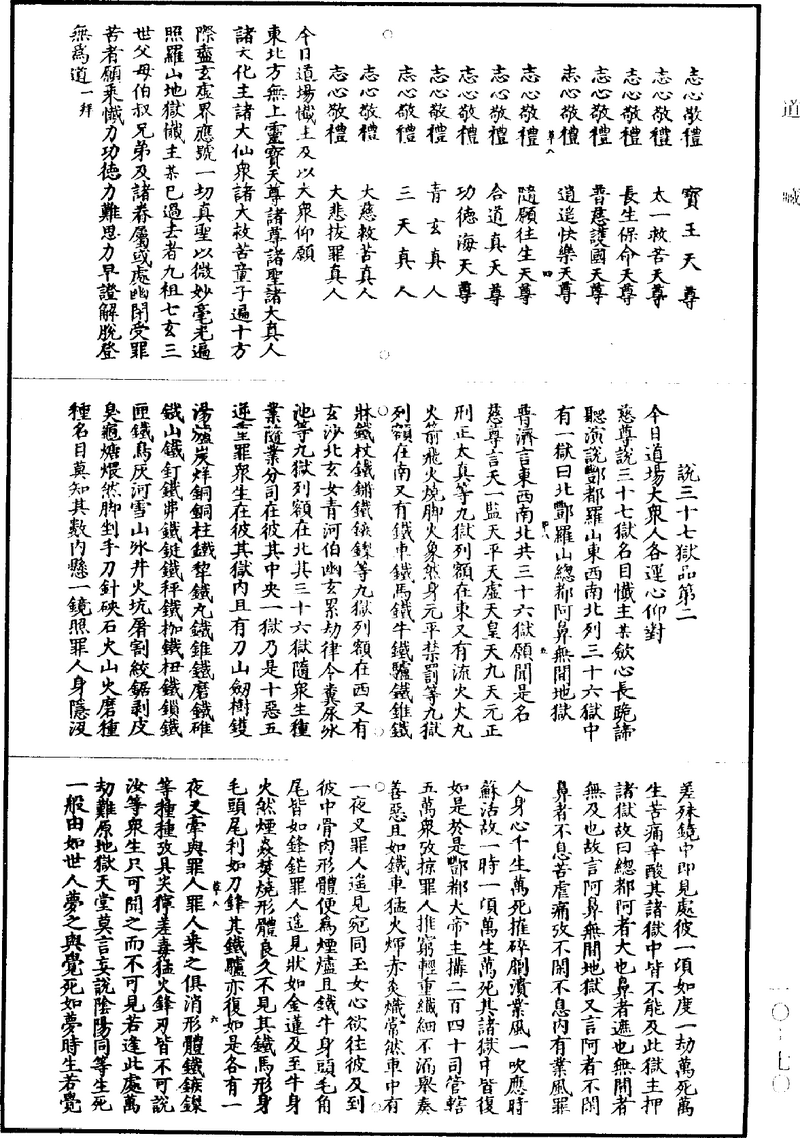 志心敬禮 寶王天尊
志心敬禮 太一救苦天尊
志心敬禮 長生保命天尊
志心敬禮 普慈護國天尊
志心敬禮 逍遥快樂天尊
志心敬禮 隨願往生天尊
志心敬禮 合道真天尊
志心敬禮 功德海天尊
志心敬禮 青玄真人
志心敬禮 三天真人
志心敬禮 大慈救苦真人
志心敬禮 大悲拔罪真人
今日道場懺主及以大衆仰願
東北方無上靈寶天尊諸尊諸聖諸大真人
諸大化主諸大仙衆諸大救苦童子遍十方
際盡玄虛界應號一切真聖以微妙毫光遍
照羅山地獄懺主某已過去者九祖七玄三
世父母伯叔兄弟及諸眷屬或處幽閉受罪
苦者願乘懺力功德力難思力早證解脫登
無爲道一拜
說三十七獄品第二
今日道場大衆人各運心仰對
慈尊說三十七獄名目懺主某欽心長跪諦
聽演說酆都羅山東西南北列三十六獄中
有一獄曰北酆羅山總都阿鼻無間地獄
普濟言東西南北共三十六獄願聞是名
慈尊言天一監天平天虛天皇天九天元正
刑正太真等九獄列額在東又有流火火丸
火箭飛火燒脚火象然身元平禁罰等九獄
列額在南又有鐵車鐵馬鐵牛鐵驢鐵錐鐵
牀鐵杖鐵鏘鐵鏃鏫等九獄列額在西又有
玄沙北玄女青河伯幽玄累劫律令糞尿氷
池等九獄列額在北共三十六獄隨衆生種
業隨業分司在彼其中央一獄乃是十惡五
逆重罪衆生在彼其獄內且有刀山劒樹鑊
湯爐炭烊銅銅柱鐵犂鐵丸鐵錐鐵磨鐵碓
鐵山鐵釘鐵弗鐵鋌鐵秤鐵枷鐵杻鐵鎖鐵
匣鐵鳥灰河雪山氷井火坑屠割絞鋸剥皮
臭﻿爐煻煨然脚剉手刀針硤石火山火磨種
種名目莫知其數內懸一鏡照罪人身隱沒
差殊鏡中即見處彼一項如度一劫萬死萬
生苦痛辛酸其諸獄中皆不能及此獄主押
諸獄故曰總都阿者大也鼻者遮也無間者
無及也故言阿鼻無間地獄又言阿者不閑
鼻者不息苦虐痛攻不閑不息內有業風罪
人身心千生萬死摧碎劘潰業風一吹應時
蘇活故一時一項萬生萬死其諸獄中皆復
如是於是酆都大帝主構二百四十司管轄
五萬衆攷掠罪人推窮輕重纖細不漏舉奏
善惡且如鐵車猛火煇赤炎熾常然車中有
一夜叉罪人遥見宛同玉女心欲往彼及到
彼中骨肉形體便爲煙燼且鐵牛身頭毛角
尾皆如鋒鋩罪人遥見狀如金蓮及至牛身
火然煙焱焚燒形體良久不見其鐵馬形身
毛頭尾利如刀鋒其鐵驢亦復如是各有一
夜叉牽與罪人罪人乘之俱消形體鐵鏃鏫
等種種攷具尖獰差毒猛火鋒刃皆不可說
汝等衆生只可聞之而不可見若逢此處萬
劫難原地獄天堂莫言妄說陰陽同等生死
一般由如世人夢之與覺死如夢時生若覺
道藏
一〇·七〇